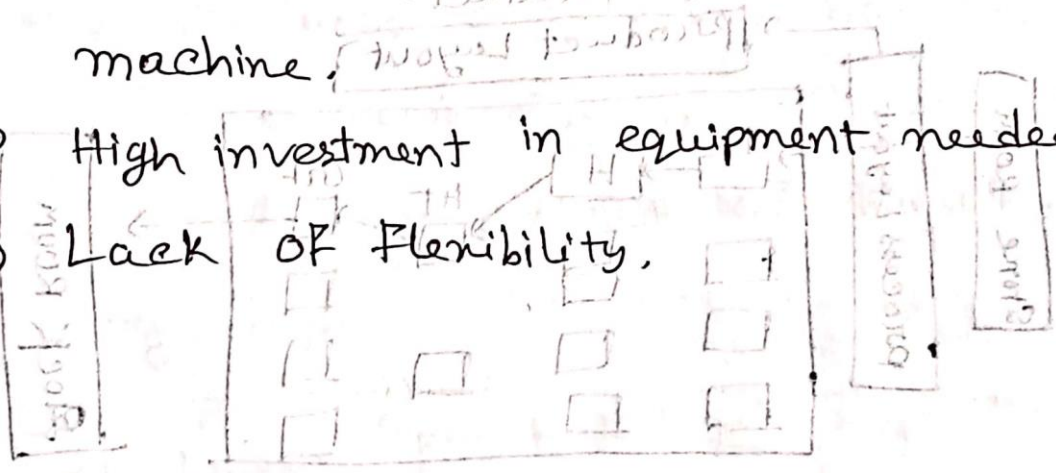 machine.
High investment in equipment neede
Lack of Flexibility.
Product Layout